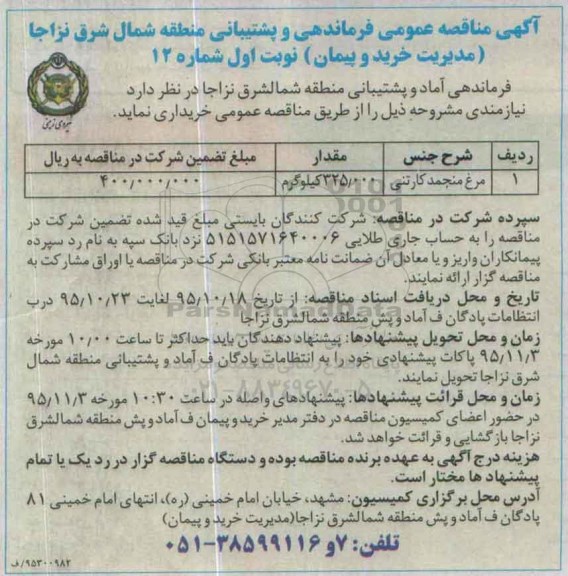 آگهی مناقصه عمومی فرماندهی و پشتیبانی منطقه شمال شرق نزاجا
(مدیریت خرید و پیمان) نوبت اول شماره ۱۲
فرماندهی آماد و پشتیبانی منطقه شمالشرق نزاجا در نظر دارد
نیازمندی مشروحه ذیل را از طریق مناقصه عمومی خریداری نماید.
نیروی زمینی
ردیف شرح جنس مقدار مبلغ تضمین شرکت در مناقصه به ریال
۱ مرغ منجمد کارتنی ۳۲۵/۰۰۰کیلوگرم ۴۰۰/۰۰۰/۰۰۰
سپرده شرکت در مناقصه: شرکت کنندگان بایستی مبلغ قید شده تضمین شرکت در
مناقصه را به حساب جاری طلایی ۵۱۵۱۵۷۱۶۴۰۰۰۶ نزد بانک سپه به نام رد سپرده
پیمانکاران واریز و یا معادل آن ضمانت نامه معتبر بانکی شرکت در مناقصه یا اوراق مشارکت به
مناقصه گزار ارائه نمایند.
تاریخ و محل دریافت اسناد مناقصه: از تاریخ ۹۵/۱۰/۱۸ لغایت ۹۵/۱۰/۲۳ درب
انتظامات پادگان ف آماد و پش منطقه شمالشرق نزاجا
زمان و محل تحویل پیشنهادها: پیشنهاد دهندگان باید حداکثر تا ساعت ۱۰/۰۰ مورخه
۹۵/۱۱/۳ پاکات پیشنهادی خود را به انتظامات پادگان ف آماد و پشتیبانی منطقه شمال
شرق نزاجا تحویل نمایند.
زمان و محل قرائت پیشنهادها: پیشنهادهای واصله در ساعت ۱۰:۳۰ مورخه ۹۵/۱۱/۳
در حضور اعضای کمیسیون مناقصه در دفتر مدیر خرید و پیمان ف آماد و پش منطقه شمالشرق
نزاجا بازگشایی و قرائت خواهد شد.
هزینه درج آگهی به عهده برنده مناقصه بوده و دستگاه مناقصه گزار در رد یک یا تمام
پیشنهاد ها مختار است.
آدرس محل برگزاری کمیسیون: مشهد، خیابان امام خمینی (ره)، انتهای امام خمینی ۸۱
پادگان ف آماد و پش منطقه شمالشرق نزاجا(مدیریت خرید و پیمان)
تلفن: ۷و ۳۸۵۹۹۱۱۶-۰۵۱
۹۵۳۰۰۹۸۲/ف
ParsNamadData
۰۲۱-۸۸۳۴۹۶۷۰-۵